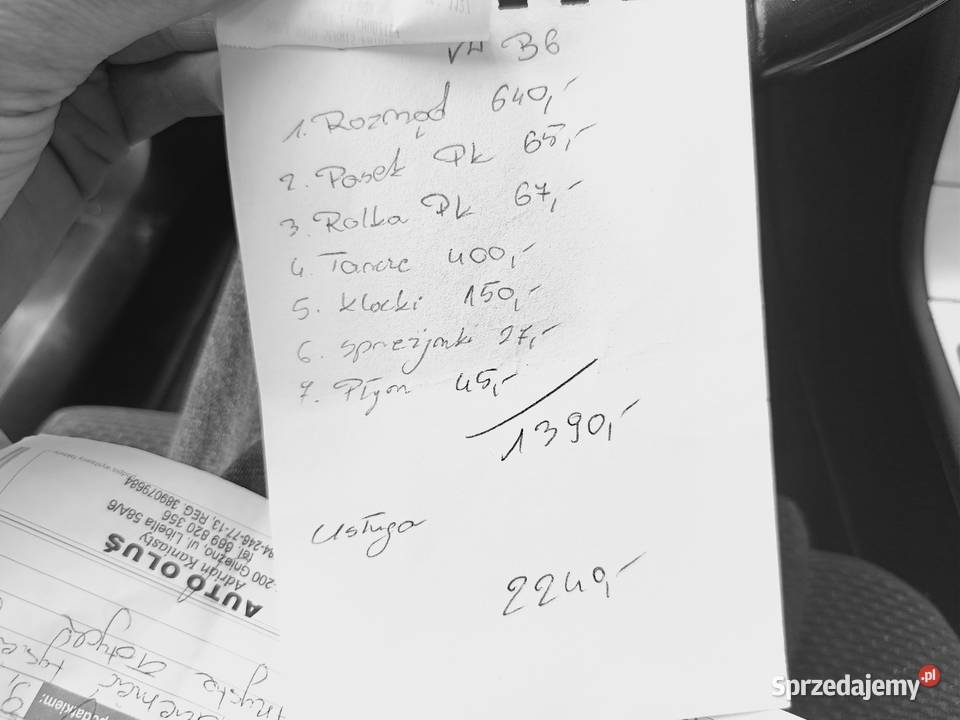 VW B6
1. Rozrząd 640,-
2. Pasek Pk 65,-
3. Rolka Pk 67,-
4. Tarcze 400,-
5. klocki 150,-
6. sprężynki 27,-
7. Płyn 45,-
1390,-
Usługa
2240,-
AUTO OLUŚ
Adrian Kaniasty
-200 Gniezno, ul. Libelta 58A/6
tel. 669 820 356
94-246-77-13, REG. 389079684
Sprzedajemy.pl